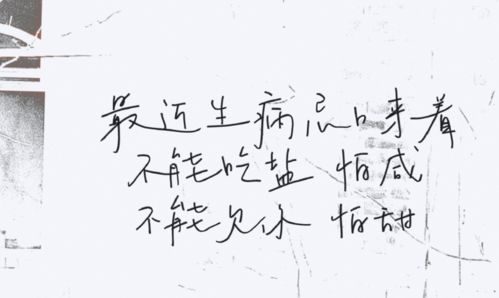 最近生病忌口来着
不能吃盐 怕咸
不能欠你 怕甜